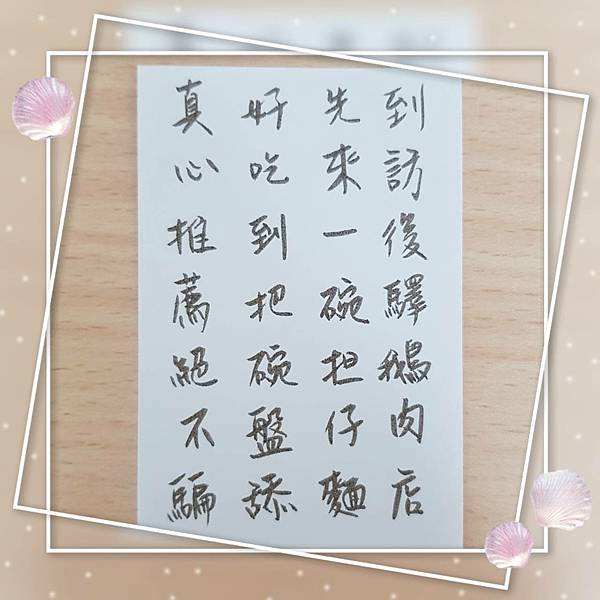 到訪後驛鵝肉店
先來一碗担仔麵
好吃到把碗盤舔
真心推薦絕不騙